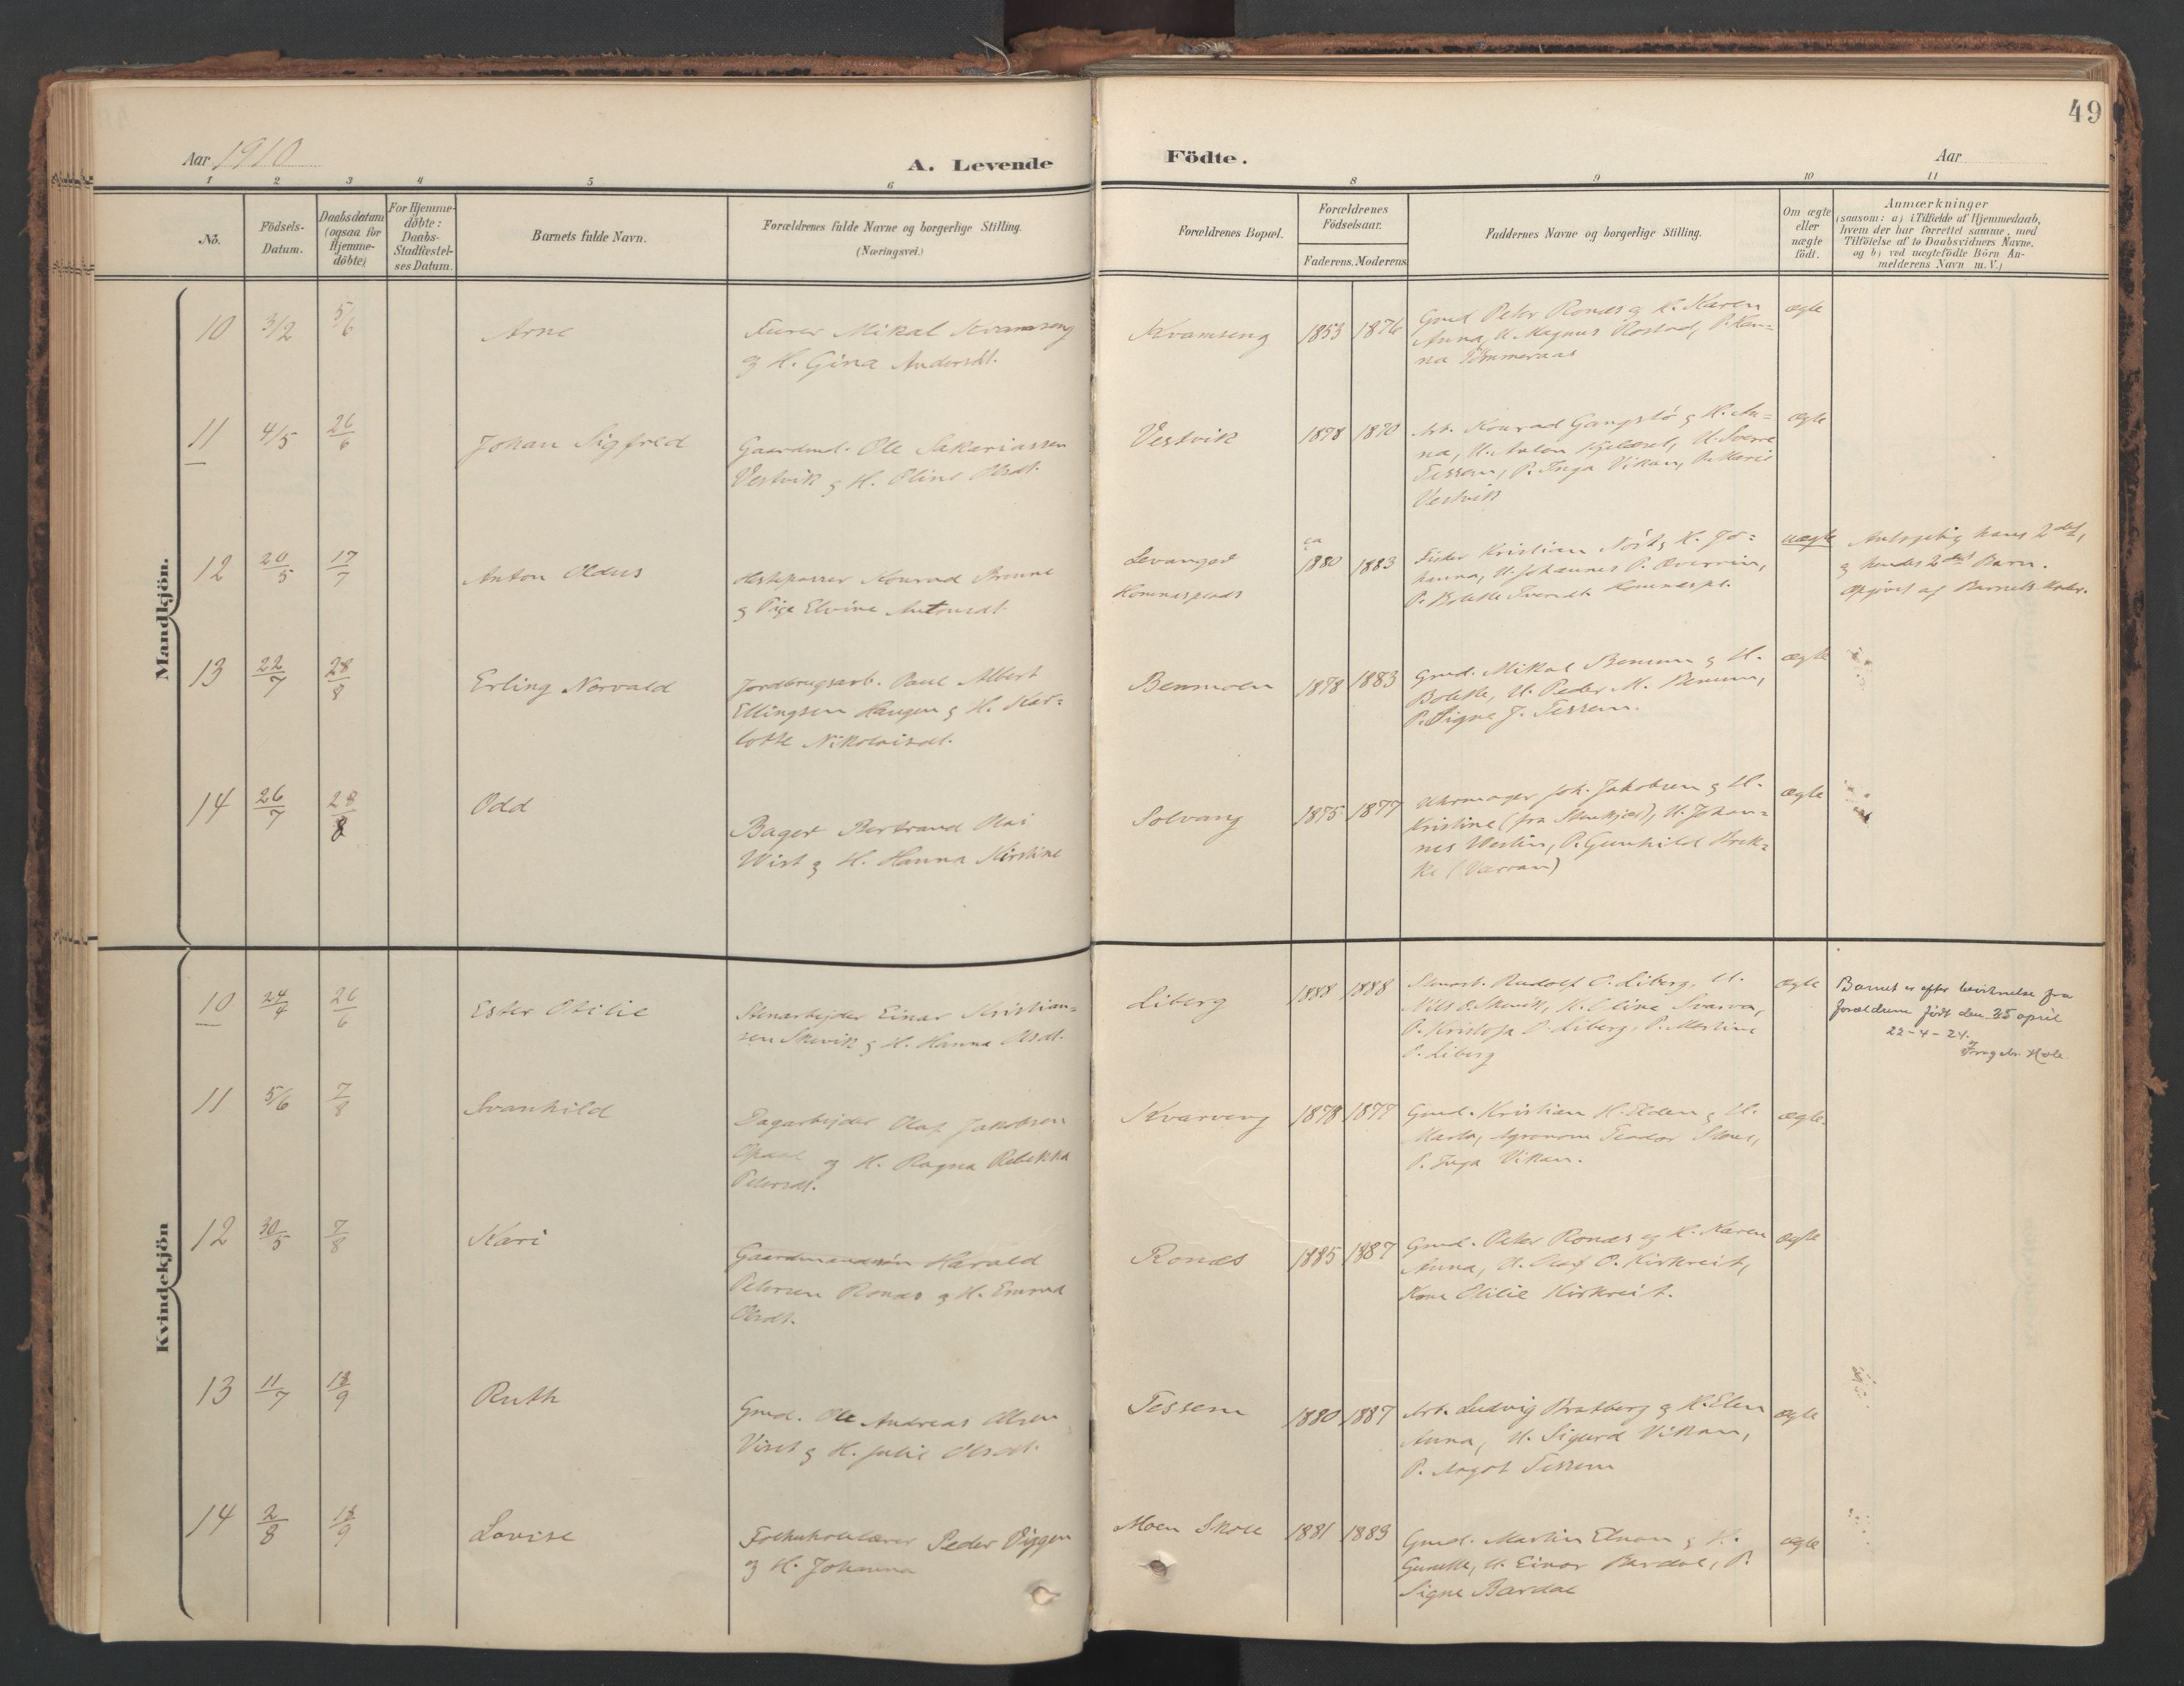 49
Aar 1910
A. Levende
Födte.
Aar
1 2 3 4 5 6 8 9 10 11
No.
Födsels-
Datum.
Daabsdatum
(ogsaa for
Hjemme-
döbte)
For Hjemme-
döbte:
Daabs-
Stadfæstel-
ses Datum.
Barnets fulde Navn.
Forældrenes fulde Navne og borgerlige Stilling.
(Næringsvei.)
Forældrenes Bopæl.
Forældrenes
Födselsaar.
Faderens. Moderens
Faddernes Navne og borgerlige Stilling.
Om ægte
eller
uægte
födt.
Anmærkninger
(saasom: a) i Tilfælde af Hjemmedaab,
hvem der har forrettet samme, med
Tilföielse af to Daabsvidners Navne.
og b) ved uægtefödte Börn An-
melderens Navn m.V.)
Mandkjön.
10 3/2 5/6 Arne
Mikal Kvamseng
og H. Gina Andersdt.
Kvamseng 1853 1876
Gmd Peter Ronæs og H. Karen
Anna, U. Magnus Rostad, P. Han=
na Tömmeraas
ægte
11 4/5 26/6 Johan Sigfred
Gaardmd. Ole Sakariassen
Vestvik og H. Oline Olsdt.
Vestvik 1878 1870
Arb. Konrad Gangstö og H. An=
na, U. Anton U. Sverre
Tessem, P. Inga Vikan, P. Marie
Vestvik
ægte
12 20/5 17/7 Anton Oldus
Hestepasser Konrad
og Pige Elvine Antonsdt.
Levanger
Homnæsplads
ca
1880 1883
Kristian og H. Jo=
hanna, U. Johannes P.
P. Bolette
uægte
Antagelig hans 2det,
og hendes 2det Barn.
Opgivet af Barnets Moder.
13 22/7 28/8 Erling Norvald
Jordbrugsarb. Paul Albert
Ellingsen Haugen og H. Kar=
lotte Nikolaisdt.
Benmoen 1878 1883
Gmd. Mikal og H.
Bolette, U. Peder M.
P. Signe J. Tessem.
ægte
14 26/7 28/8 Odd
Bager Bertrand Olai
Wist og H. Hanna Kirstine
Solvang 1875 1877
Uhrmager Joh. Jakobsen og H.
Kristine (fra Stenkjær), U. Johan=
nes P. Gunhild Brek=
ke (Værran)
ægte
Kvindekjön
10 24/4 26/6 Ester Otilie
Stenarbejder Einar Kristian=
sen Skevik og H. Hanna Olsdt.
Liberg 1888 1888
Rudolf O. Liberg, U.
Nils O. Skevik, K. Oline
P. Kristofa O. Liberg, P. Martine
P. Liberg
ægte
Barnet er efter bevidnelse fra
forældrene født den 25 april
22-4-24.
11 5/6 7/8 Svanhild
Dagarbejder Olaf Jakobsen
Opaal og H. Ragna Rebekka
Petersdt.
Kvarveng 1878 1877
Gmd. Kristian H. Elden og H.
Marta, Agronom Teodor
P. Inga Vikan.
ægte.
12 30/5 7/8 Kari
Gaardmandsøn Harald
Petersen Ronæs og H. Emma
Olsdt.
Ronæs 1885 1887
Gmd. Peter Ronæs og H. Karen
Anna, U. Olaf O. Kirkreit,
Kone Otilie Kirkreit.
ægte
13 11/7 18/9 Ruth
Gmd. Ole Andreas Olsen
Viset og H. Julie Olsdt.
Tessem 1880 1887
Arb. Ludvig Bratberg og H. Elen
Anna, U. Sigurd Vikan,
P. Margot Tessem
ægte
14 2/8 18/9 Lovise
Folkeskolelærer Peder Viggen
og H. Johanna
Moen Skole 1881 1883
Gmd. Martin Elnan og H.
Gunelle, U. Einar Bardal, P.
Signe Bardal
ægte